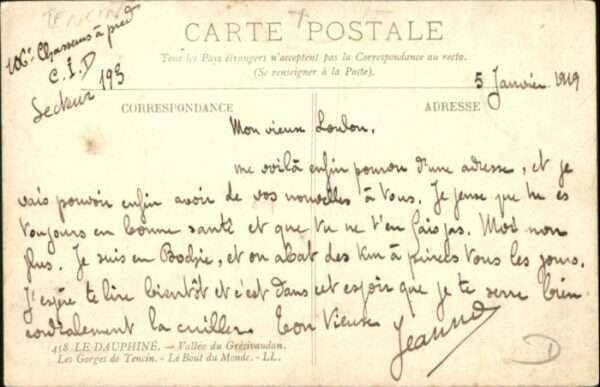 TENCIN
CARTE POSTALE
Tous les Pays étrangers n'acceptent pas la Correspondance au recto.
(Se renseigner à la Poste).
106e Chasseurs à pied
C.I.D
Secteur 193
5 Janvier 1919
CORRESPONDANCE
ADRESSE
Mon vieux Loulou,
me voilà enfin pourvu d'une adresse, et je
vais pouvoir enfin avoir de vos nouvelles à tous. Je pense que tu es
toujours en bonne santé et que tu ne t'en fais pas. Moi non
plus. Je suis en Bochie, et on abat des Km à pinces tous les jours.
J'espère te lire bientôt et c'est dans cet espoir que je te serre bien
cordialement la cuiller. Ton vieux
458 LE DAUPHINÉ. — Vallée du Grésivaudan.
Les Gorges de Tencin. - Le Bout du Monde. - LL.
D